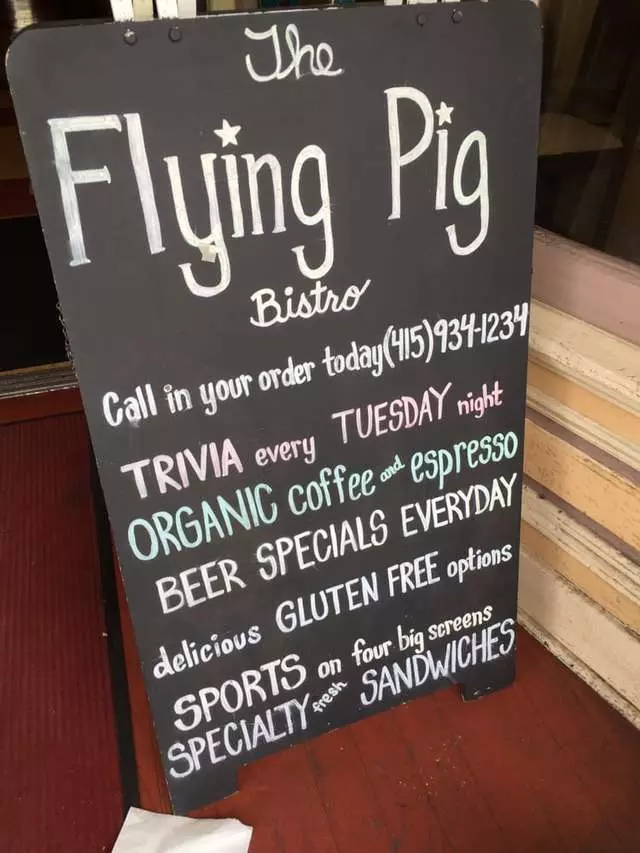 The
Flying Pig
Bistro
Call in your order today (415)934-1234
TRIVIA every TUESDAY night
ORGANIC coffee and espresso
BEER SPECIALS EVERYDAY
delicious GLUTEN FREE options
SPORTS on four big screens
SPECIALTY fresh SANDWICHES